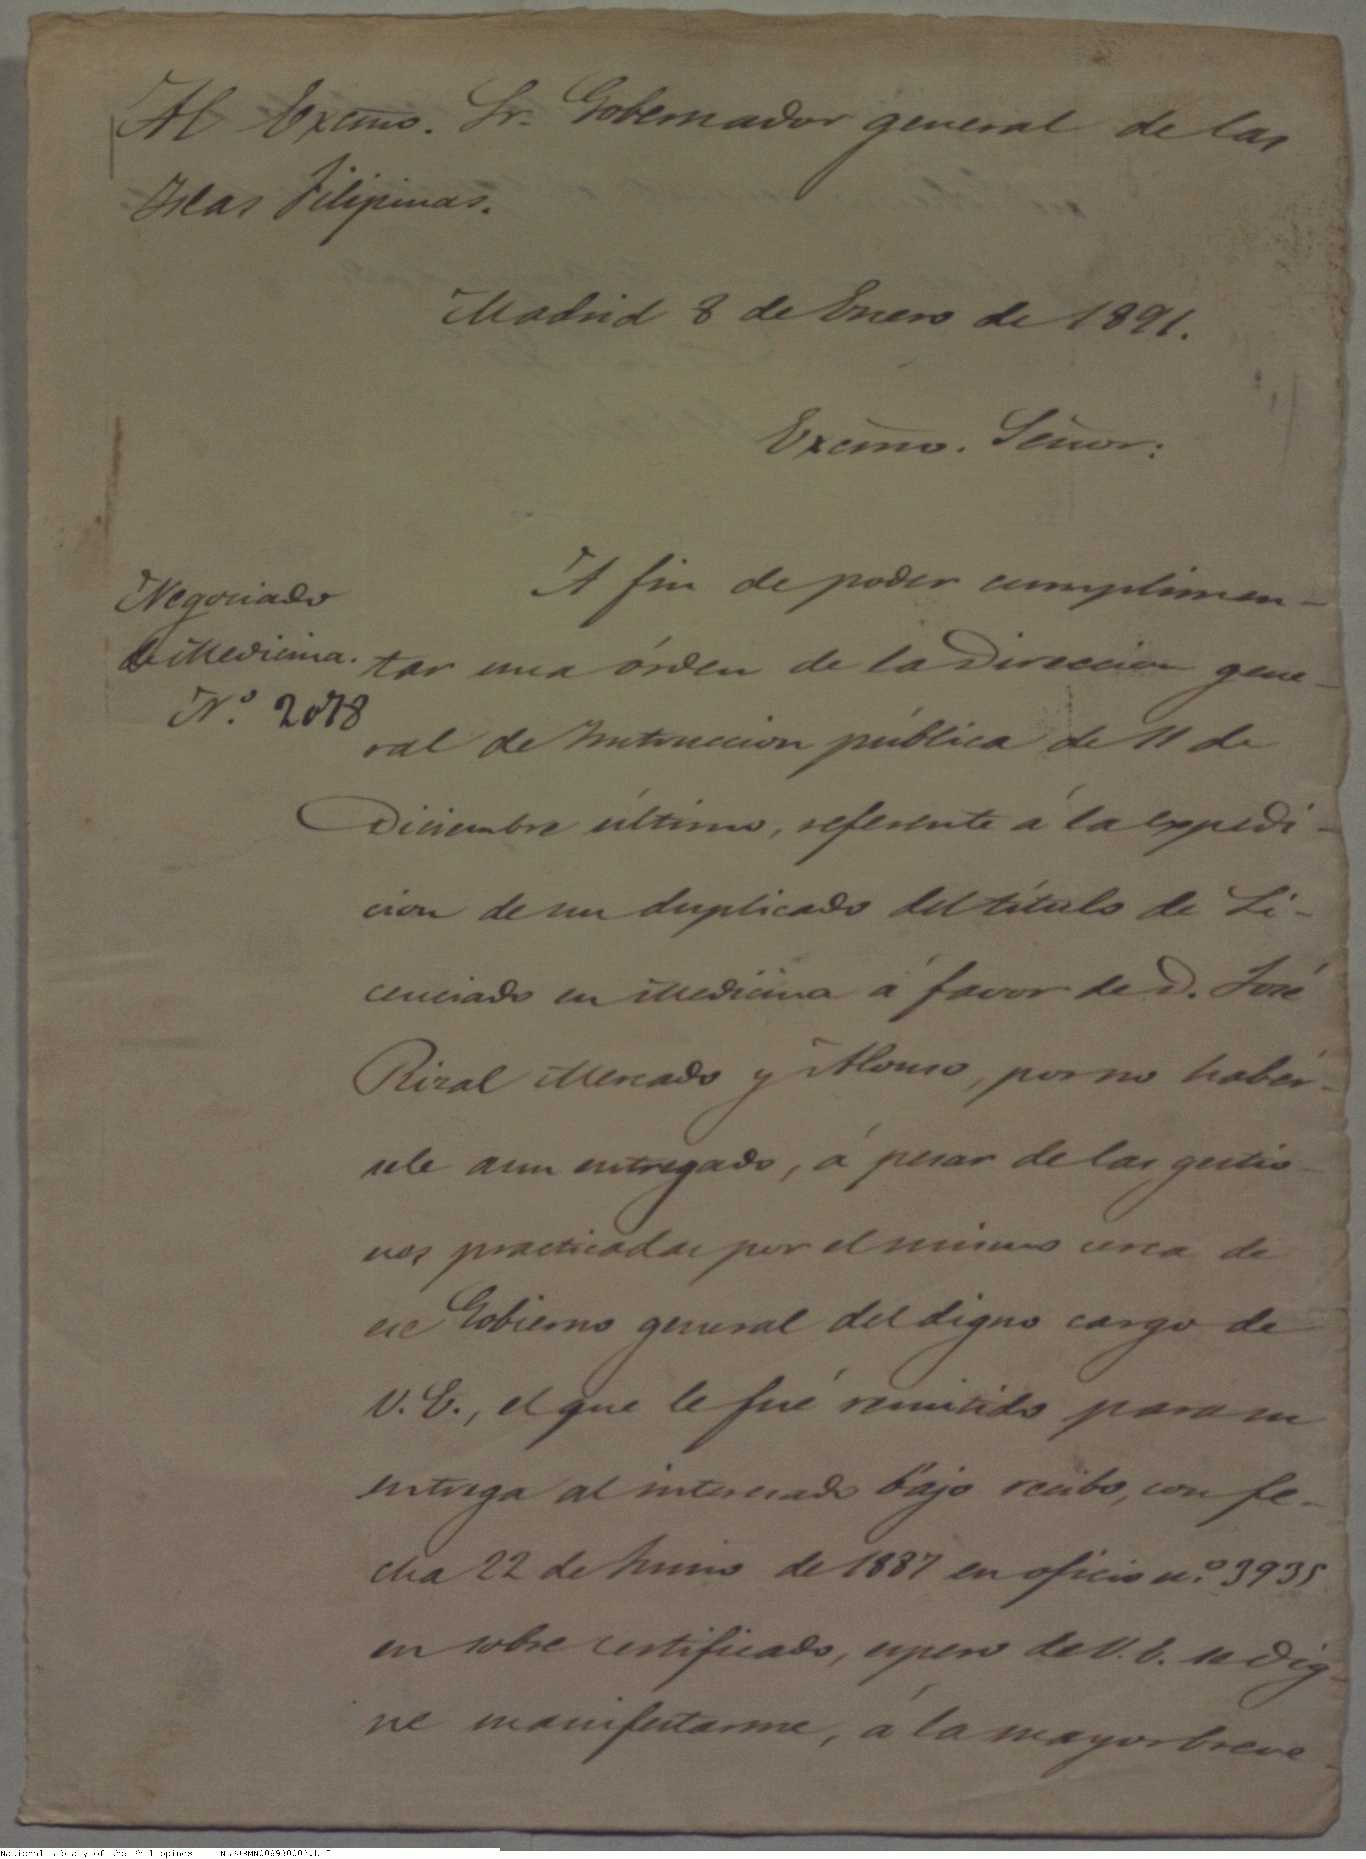 Al Excmo. Sr. Gobernador general de las
Islas Filipinas.
Madrid 8 de Enero de 1891.
Excmo. Señor:
Negociado
de Medicina.
Nº. 2078
A fin de poder cumplimen-
tar una órden de la Direccion gene-
ral de Instruccion pública de 11 de
Diciembre último, referente á la expedi-
cion de un duplicado del título de Li-
cenciado en Medicina á favor de D. José
Rizal Mercado y Alonso, por no habér-
sele aun entregado, á pesar de las gestio-
nes practicadas por el mismo cerca de
ese Gobierno general del digno cargo de
V. E., el que le fué remitido para su
entrega al interesado bajo recibo, con fe-
cha 22 de Junio de 1887 en oficio nº. 3935
en sobre certificado, espero de V. E. se dig-
ne manifestarme, á la mayor breve
National Library of the Philippines